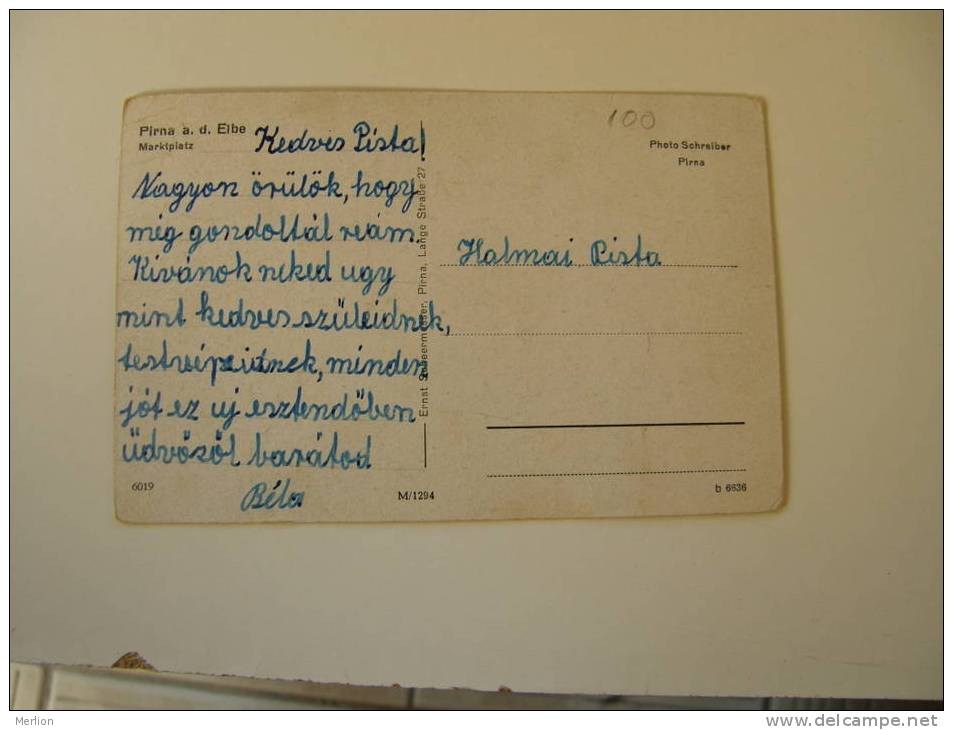 Pirna a. d. Elbe
Marktplatz
Kedves Pista!
Nagyon örülök, hogy
még gondoltál reám.
Kivánok neked ugy
mint kedves szüleidnek,
testvéreidnek, minden
jót ez uj esztendőben
üdvözöl barátod
Béla
6019
M/1294
Ernst Schneermesser, Pirna, Lange Straße 27
100
Photo Schreiber
Pirna
Halmai Pista
b 6636
Merlion
www.delcampe.net